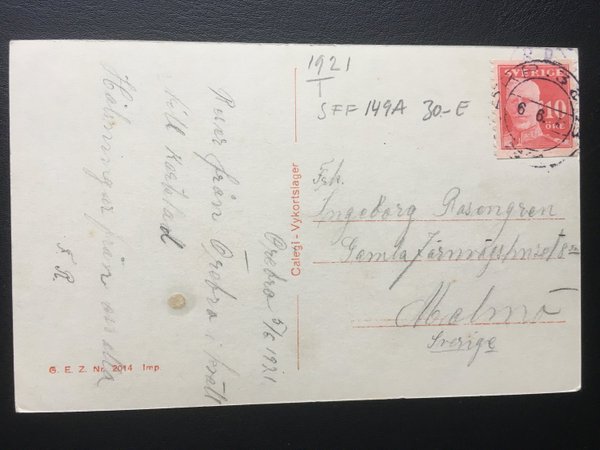 1921
1
SFF 149A 30-E
SVERIGE
10
ÖRE
6 6
Frk.
Ingeborg Rosengren
Gamla Järnvägshuset 8
Malmö
Sverige
Calegi-Vykortslager
Örebro 5/6 1921
Reser från Örebro i kväll
till Karlstad
Hälsningar från oss alla
F. R.
G. E. Z. Nr. 2014 Imp.